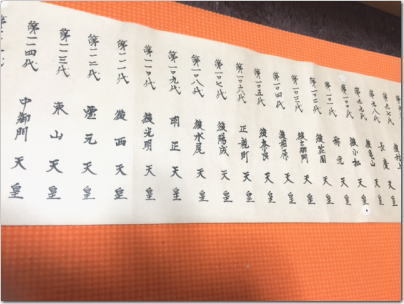 第九八代 長慶天皇
第九九代 後亀山天皇
第一〇〇代 後小松天皇
第一〇二代 後花園天皇
第一〇三代 後土御門天皇
第一〇四代 後柏原天皇
第一〇五代 後奈良天皇
第一〇六代 正親町天皇
第一〇七代 後陽成天皇
第一〇八代 後水尾天皇
第一〇九代 明正天皇
第一一〇代 後光明天皇
第一一一代 後西天皇
第一一二代 霊元天皇
第一一三代 東山天皇
第一一四代 中御門天皇